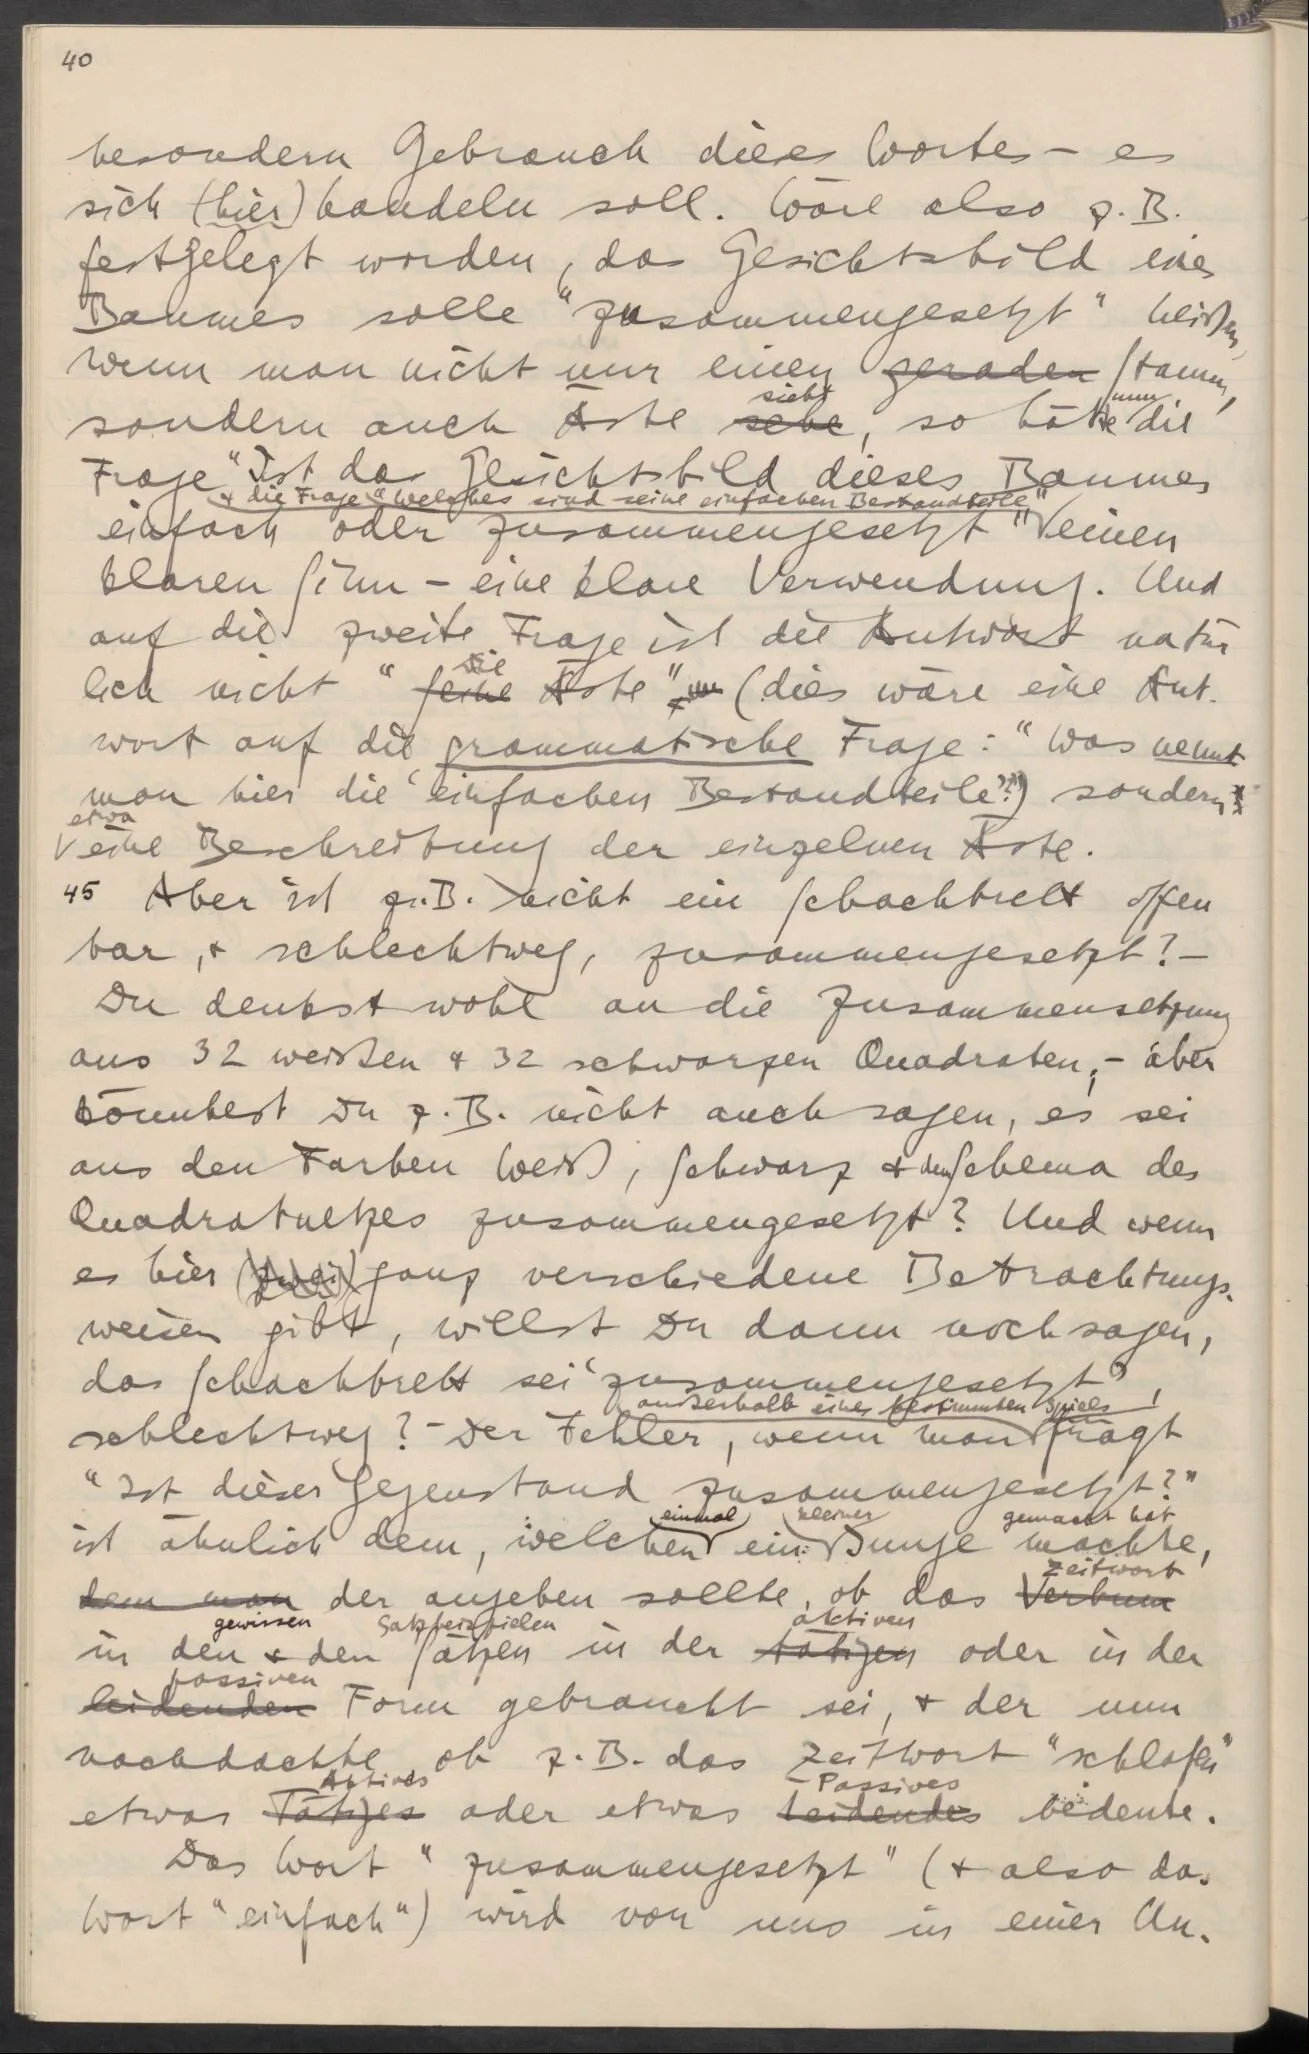 40
besondern Gebrauch dieses Wortes – es
sich (hier) handeln soll. Wäre also z.B.
festgelegt worden, das Gesichtsbild eines
Baumes solle "zusammengesetzt" heißen,
wenn man nicht nur einen geraden Stamm,
sondern auch Äste sehe sieht, so hätte nun die
Frage "Ist das Gesichtsbild dieses Baumes
& die Frage "Welches sind seine einfachen Bestandteile"
einfach oder zusammengesetzt" einen
klaren Sinn – eine klare Verwendung. Und
auf die zweite Frage ist die Antwort natür
lich nicht "seine Die Äste" (dies wäre eine Ant-
wort auf die grammatische Frage: "Was nennt
man hier die 'einfachen Bestandteile'?") sondern
etwa
eine Beschreibung der einzelnen Äste.
45 Aber ist z.B. nicht ein Schachbrett offen
bar, & schlechtweg, zusammengesetzt? –
Du denkst wohl an die Zusammensetzung
aus 32 weißen & 32 schwarzen Quadraten, – aber
könntest Du z.B. nicht auch sagen, es sei
aus den Farben Weiß, Schwarz & dem Schema des
Quadratnetzes zusammengesetzt? Und wenn
es hier (zwei) ganz verschiedene Betrachtungs-
weisen gibt, willst Du dann noch sagen,
das Schachbrett sei 'zusammengesetzt',
außerhalb eines bestimmten Spiels
schlechtweg? – Der Fehler, wenn man frägt
"Ist dieser Gegenstand zusammengesetzt?"
einmal kleiner gemacht hat
ist ähnlich dem, welchen ein Junge machte,
Zeitwort
dem man der angeben sollte, ob das Verbum
gewissen Satzbeispielen aktiven
in den & den Sätzen in der tätigen oder in der
passiven
leidenden Form gebraucht sei, & der nun
nachdachte ob z.B. das Zeitwort "schlafen"
Aktives Passives
etwas Tätiges oder etwas Leidendes bedeute.
Das Wort "zusammengesetzt" (& also das
Wort "einfach") wird von uns in einer Un-